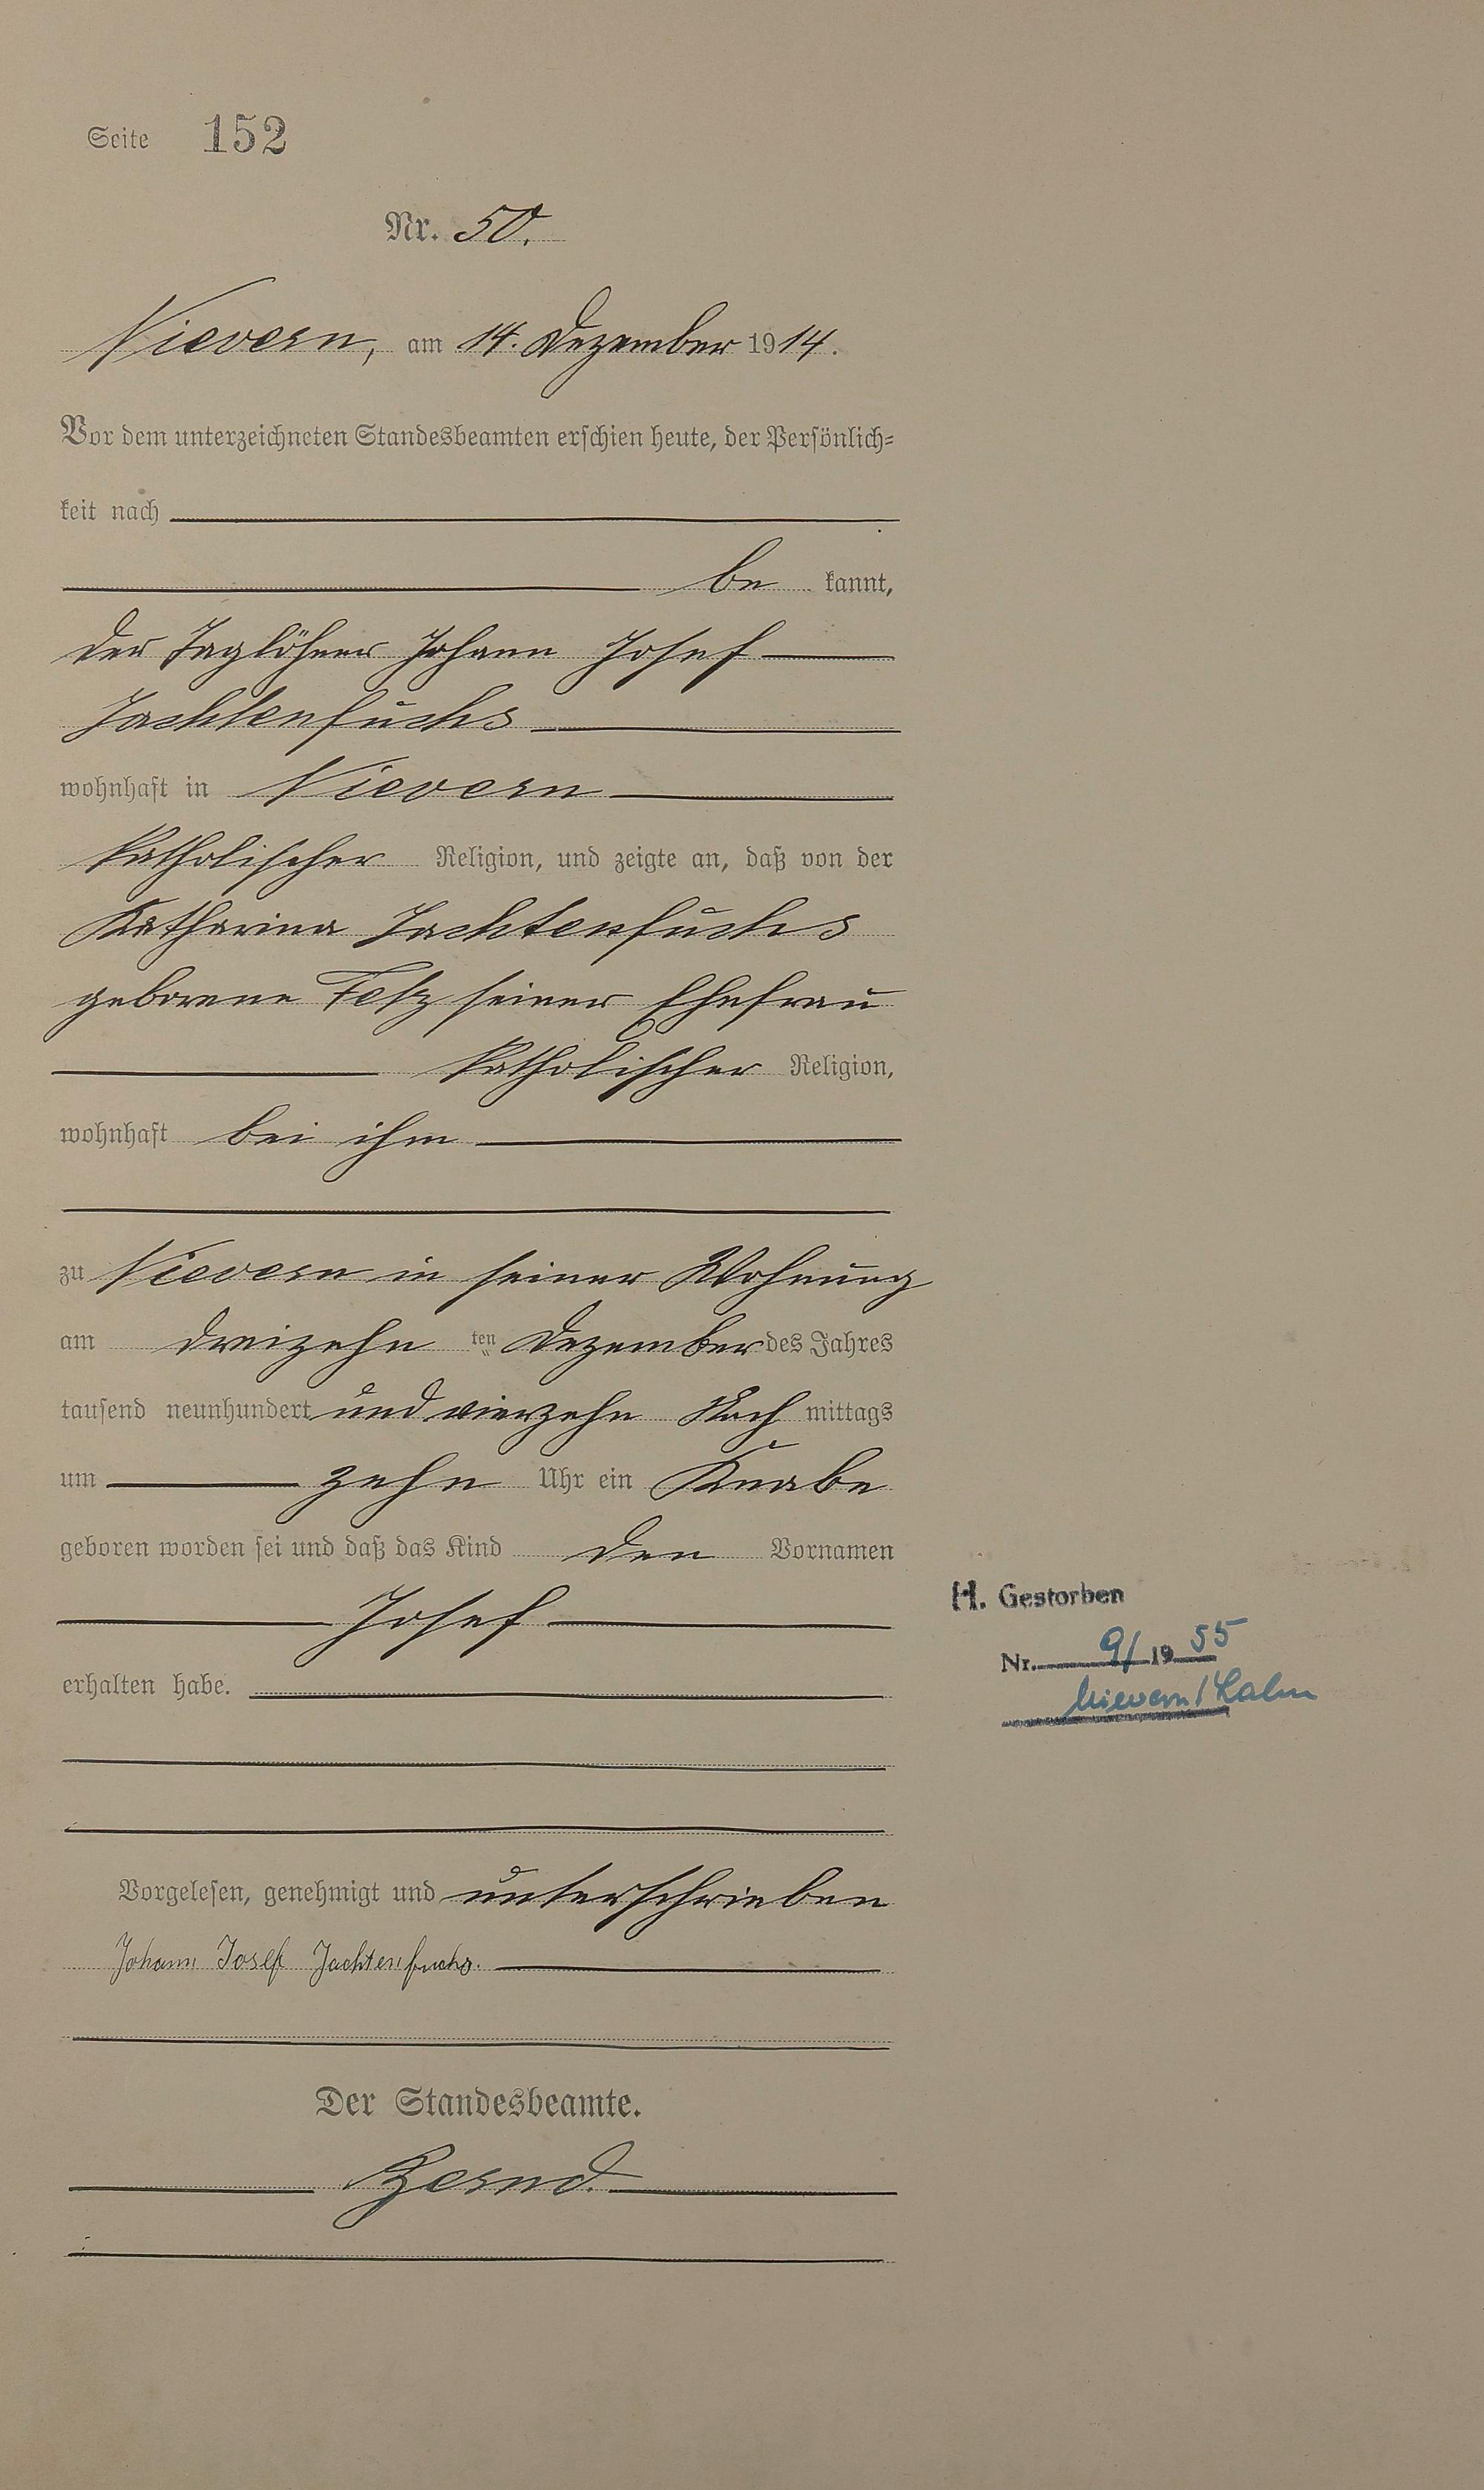 Seite 152
Nr. 50.
Nievern, am 14. Dezember 1914.
Vor dem unterzeichneten Standesbeamten erschien heute, der Persönlich=
keit nach
be kannt,
der Taglöhner Johann Josef
Jachtenfuchs
wohnhaft in Nievern
katholischer Religion, und zeigte an, daß von der
Katharina Jachtenfuchs
geborene seiner Ehefrau
katholischer Religion,
wohnhaft bei ihm
zu Nievern in seiner Wohnung
am dreizehn ten Dezember des Jahres
tausend neunhundert und vierzehn Nach mittags
um zehn Uhr ein Knabe
geboren worden sei und daß das Kind den Vornamen
Josef
erhalten habe.
H. Gestorben
Nr. 9/ 1955
Nievern/Lahn
Vorgelesen, genehmigt und unterschrieben
Johann Josef Jachtenfuchs.
Der Standesbeamte.